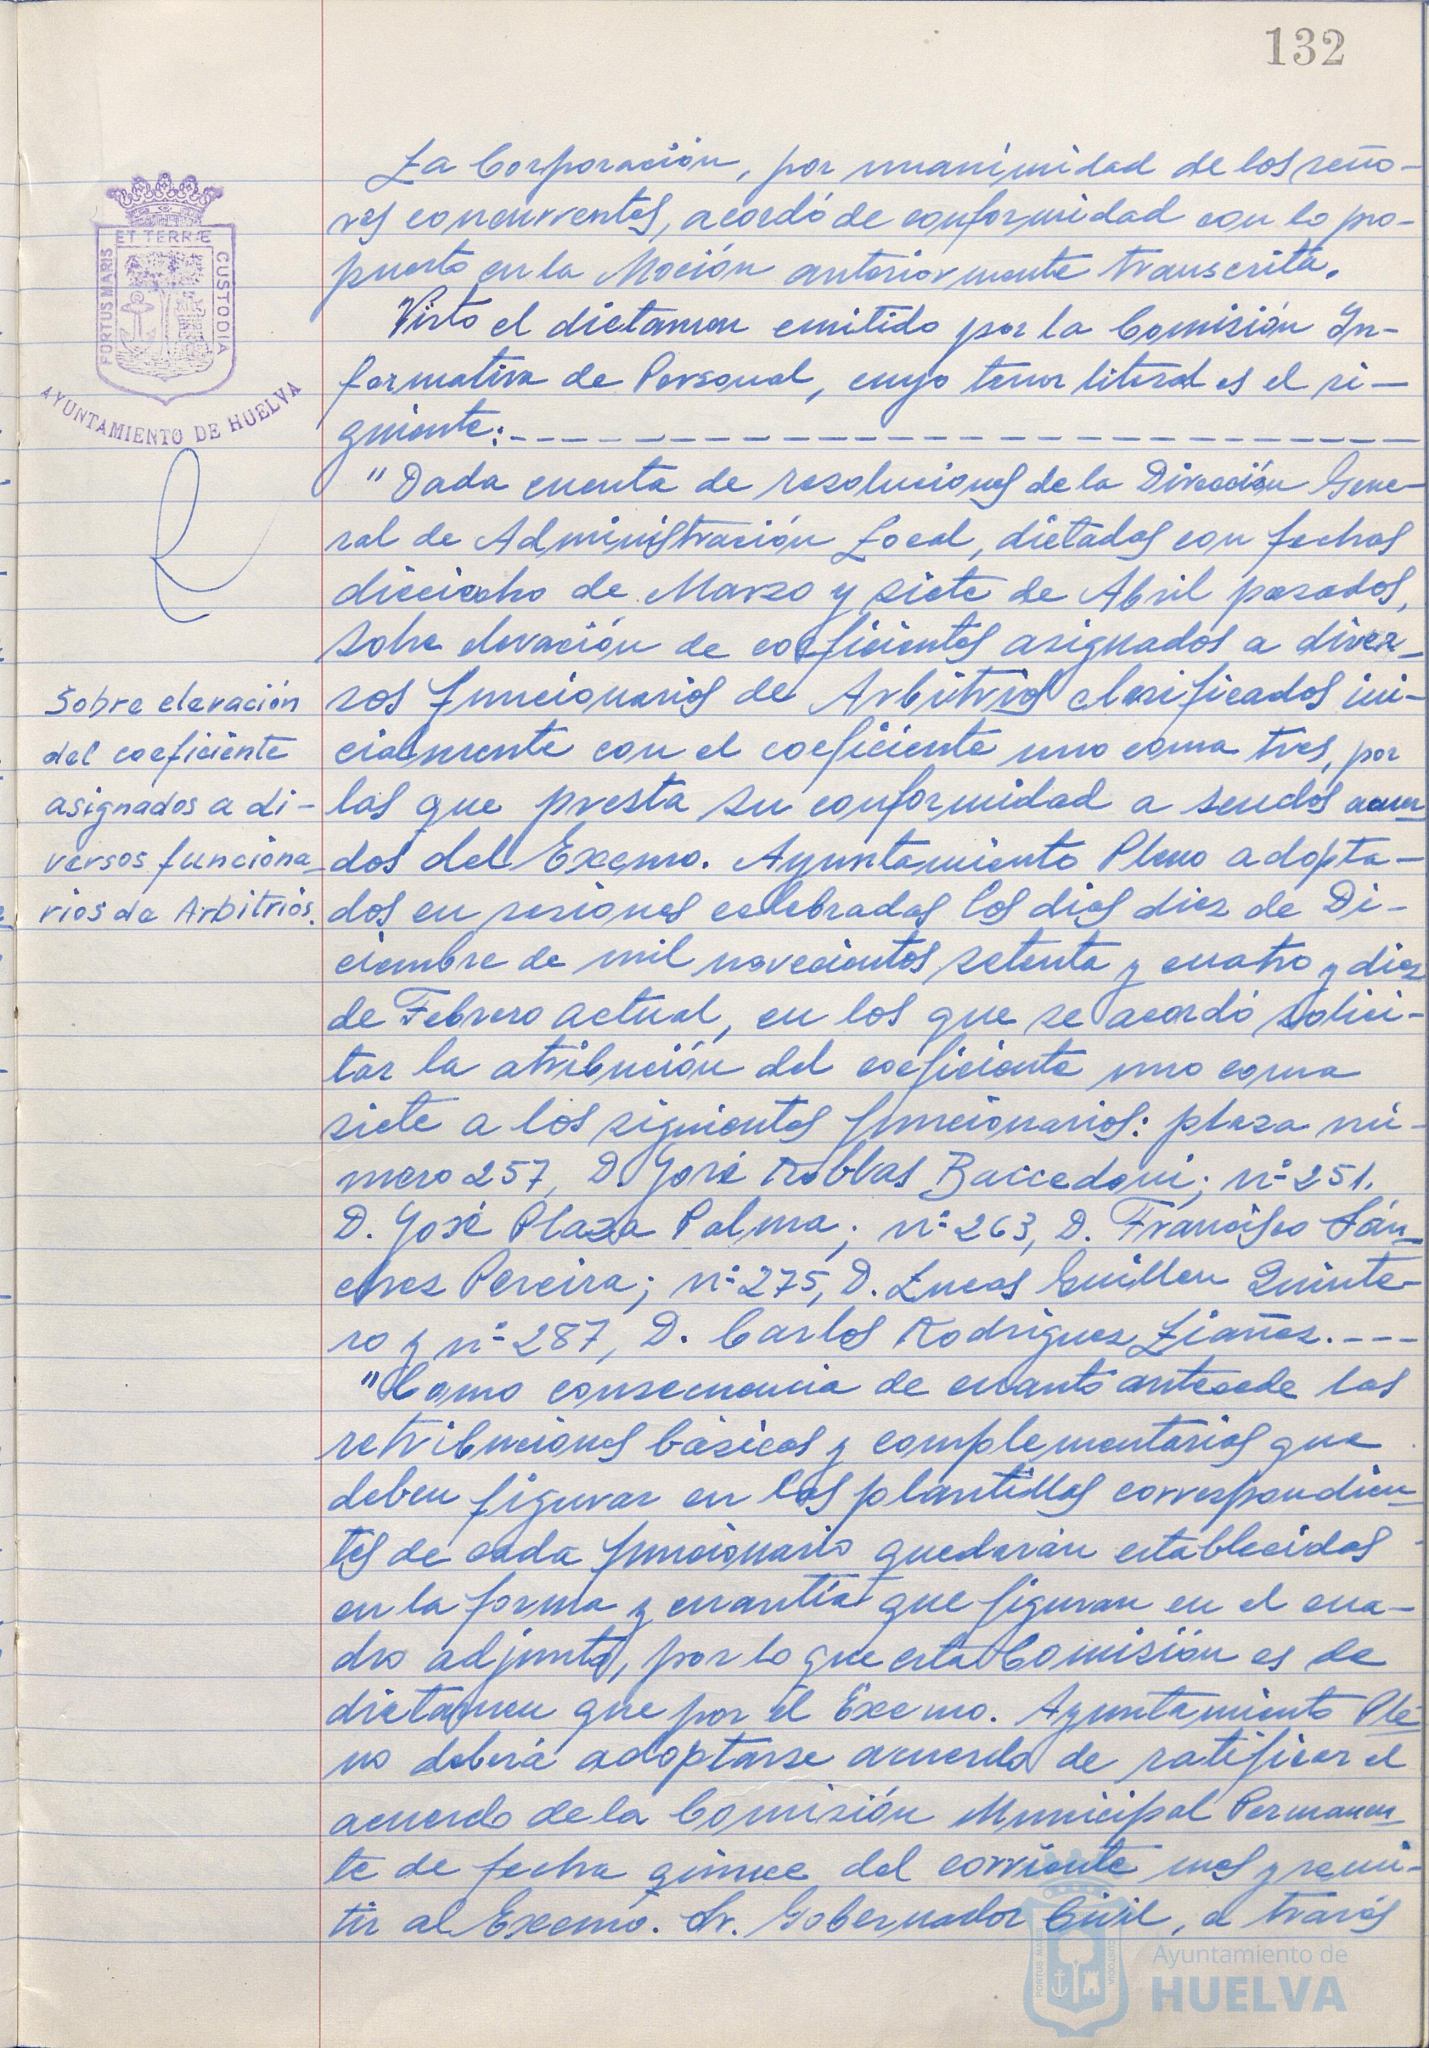 132
La Corporación, por unanimidad de los seño-
res concurrentes, acordó de conformidad con lo pro-
puesto en la Moción anteriormente transcrita.
Visto el dictamen emitido por la Comisión In-
formativa de Personal, cuyo tenor literal es el si-
guiente:
"Dada cuenta de resoluciones de la Dirección Gene-
ral de Administración Local, dictadas con fechas
dieciocho de Marzo y siete de Abril pasados,
sobre elevación de coeficientes asignados a diver-
sos funcionarios de Arbitrios clasificados ini-
cialmente con el coeficiente uno coma tres, por
las que presta su conformidad a sendos acuer-
dos del Excmo. Ayuntamiento Pleno adopta-
dos en sesiones celebradas los dias diez de Di-
ciembre de mil novecientos setenta y cuatro y diez
de Febrero actual, en los que se acordó solici-
tar la atribución del coeficiente uno coma
siete a los siguientes funcionarios: plaza nú-
mero 257, D. José Robles Baccedoni; nº 251.
D. José Plaza Palma; nº 263, D. Francisco Sán-
chez Pereira; nº 275, D. Lucas Guillen Quinte-
ro y nº 287, D. Carlos Rodriguez Liañez.---
"Como consecuencia de cuanto antecede las
retribuciones básicas y complementarias que
deben figurar en las plantillas correspondien-
tes de cada funcionario quedarán establecidas
en la forma y cuantía que figuran en el cua-
dro adjunto, por lo que esta Comisión es de
dictamen que por el Excmo. Ayuntamiento Ple-
no deberá adoptarse acuerdo de ratificar el
acuerdo de la Comisión Municipal Permanen-
te de fecha quince del corriente mes y remi-
tir al Excmo. Sr. Gobernador Civil, a través
PORTUS MARIS ET TERRÆ CUSTODIA
AYUNTAMIENTO DE HUELVA
Sobre elevación
del coeficiente
asignados a di-
versos funciona-
rios de Arbitrios.
PORTUS MARIS CUSTODIA
Ayuntamiento de
HUELVA